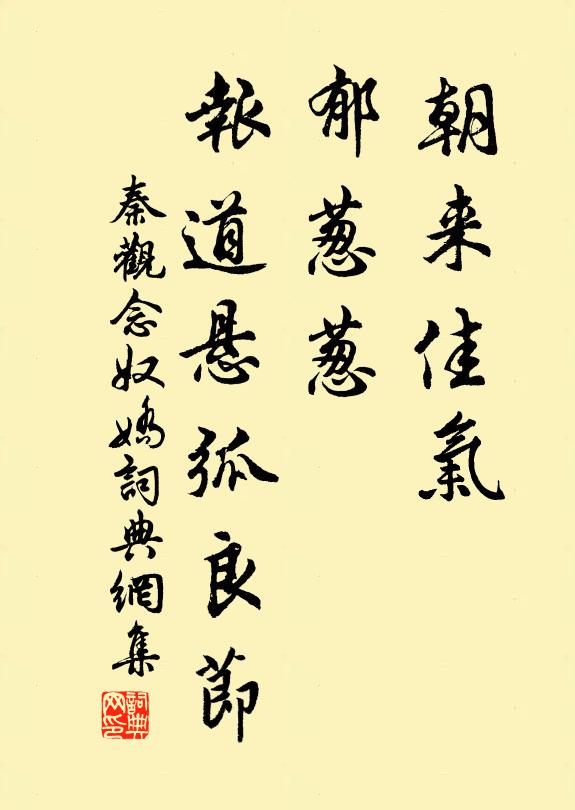 朝来佳氣
郁葱葱
報道悬弧良節
秦觀念奴嬌詞典網集
詞典
网印